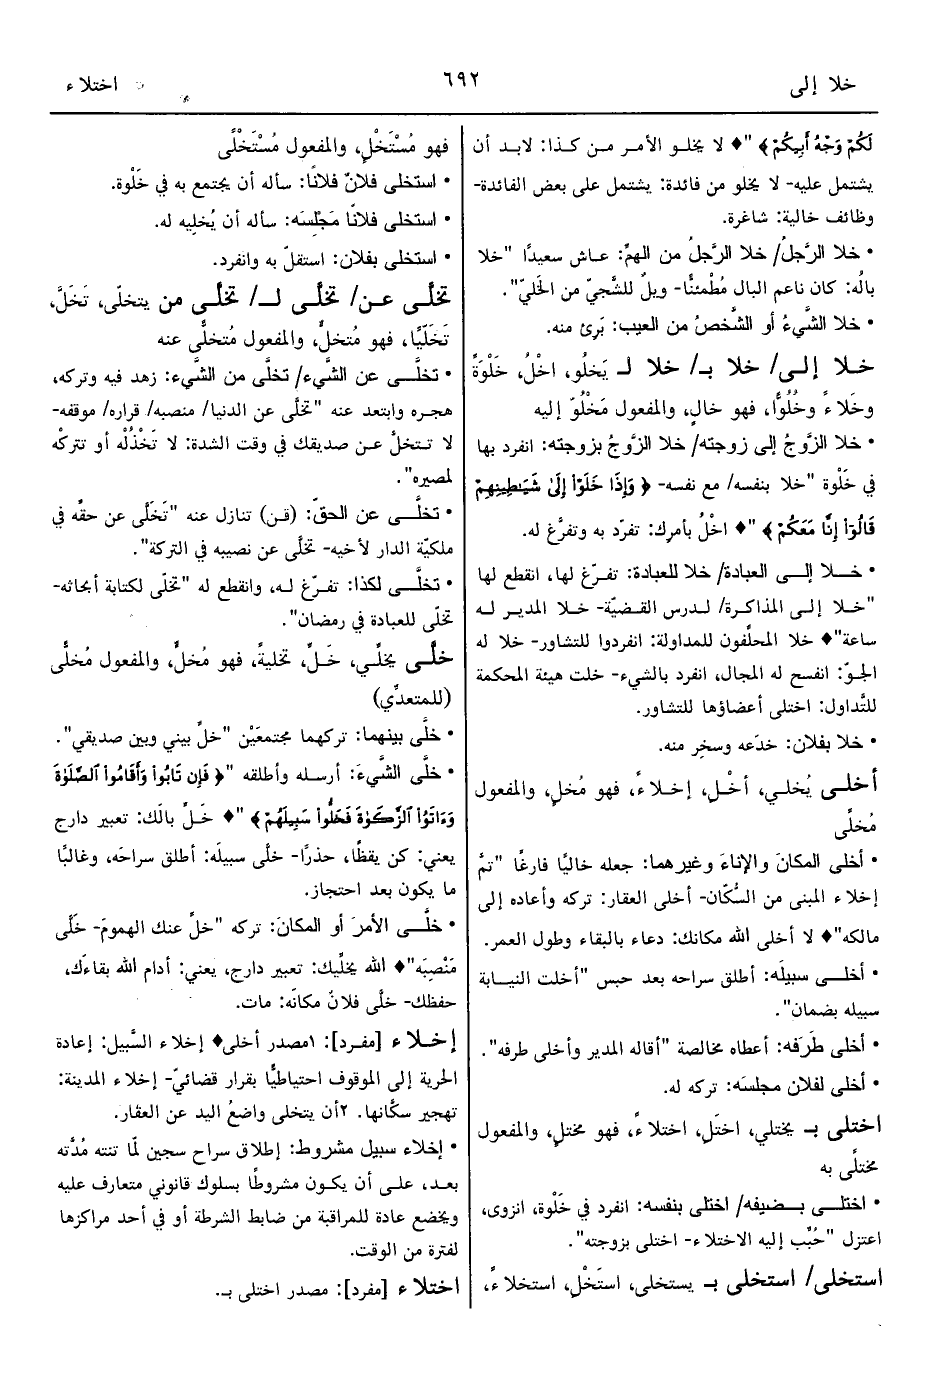 خلا إلى
٦٩٢
اختلاء
لَكُمْ وَجْهُ أَبِيكُمْ﴾ "♦ لا يخلو الأمر من كذا: لابد أن
يشتمل عليه- لا يخلو من فائدة: يشتمل على بعض الفائدة-
وظائف خالية: شاغرة.
• خلا الرَّجلُ/ خلا الرَّجلُ من الهمّ: عاش سعيدًا "خلا
بالُه: كان ناعم البال مُطْمئنًّا- ويلٌ للشَّجيّ من الخَليّ".
• خلا الشَّيءُ أو الشَّخصُ من العيب: بَرِئ منه.
خلا إلى/ خلا بـ/ خلا لـ يَخلُو، اخْلُ، خَلْوَةً
وخَلاءً وخُلُوًّا، فهو خالٍ، والمفعول مَخْلُوّ إليه
• خلا الزَّوجُ إلى زوجته/ خلا الزَّوجُ بزوجته: انفرد بها
في خَلْوة "خلا بنفسه/ مع نفسه- ﴿وَإِذَا خَلَوْا إِلَىٰ شَيَٰطِينِهِمْ
قَالُوٓا إِنَّا مَعَكُمْ﴾ "♦ اخْلُ بأمرك: تفرّد به وتفرَّغ له.
• خلا إلى العبادة/ خلا للعبادة: تفرّغ لها، انقطع لها
"خلا إلى المذاكرة/ لدرس القضيّة- خلا المدير له
ساعة"♦ خلا المحلَّفون للمداولة: انفردوا للتشاور- خلا له
الجوّ: انفسح له المجال، انفرد بالشيء- خلت هيئة المحكمة
للتَّداول: اختلى أعضاؤها للتشاور.
• خلا بفلان: خدَعه وسخِر منه.
أخلى يُخلي، أَخْلِ، إخلاءً، فهو مُخلٍ، والمفعول
مُخلًى
• أخلى المكانَ والإناءَ وغيرهما: جعله خاليًا فارغًا "تمَّ
إخلاء المبنى من السُّكّان- أخلى العقار: تركه وأعاده إلى
مالكه"♦ لا أخلى الله مكانك: دعاء بالبقاء وطول العمر.
• أخلى سبيلَه: أطلق سراحه بعد حبس "أخلت النيابة
سبيله بضمان".
• أخلى طَرَفه: أعطاه مخالصة "أقاله المدير وأخلى طرفه".
• أخلى لفلان مجلسَه: تركه له.
اختلى بـ يختلي، اختَلِ، اختلاءً، فهو مختلٍ، والمفعول
مختلًى به
• اختلى بضيفه/ اختلى بنفسه: انفرد في خَلْوة، انزوى،
اعتزل "حُبِّب إليه الاختلاء- اختلى بزوجته".
استخلى/ استخلى بـ يستخلى، استَخْلِ، استخلاءً،
فهو مُسْتَخْلٍ، والمفعول مُسْتَخْلًى
• استخلى فلانٌ فلانًا: سأله أن يجتمع به في خَلْوة.
• استخلى فلانًا مَجْلِسَه: سأله أن يُخليه له.
• استخلى بفلان: استقلّ به وانفرد.
تخلَّى عن/ تخلَّى لـ/ تخلَّى من يتخلّى، تَخَلَّ،
تَخَلّيًا، فهو مُتخلٍّ، والمفعول مُتخلًّى عنه
• تخلَّى عن الشَّيء/ تخلَّى من الشَّيء: زهد فيه وتركه،
هجره وابتعد عنه "تخلَّى عن الدنيا/ منصبه/ قراره/ موقفه-
لا تتخلَّ عن صديقك في وقت الشدة: لا تَخْذُلْه أو تتركْه
لمصيره".
• تخلَّى عن الحقّ: (قن) تنازل عنه "تَخلَّى عن حقِّه في
ملكيّة الدار لأخيه- تخلَّى عن نصيبه في التركة".
• تخلَّى لكذا: تفرّغ له، وانقطع له "تخلّى لكتابة أبحاثه-
تخلّى للعبادة في رمضان".
خلَّى يخلّي، خَلِّ، تخليةً، فهو مُخلٍّ، والمفعول مُخلًّى
(للمتعدِّي)
• خلَّى بينهما: تركهما مجتمعَيْن "خلِّ بيني وبين صديقي".
• خلَّى الشَّيءَ: أرسله وأطلقه "﴿فَإِن تَابُوا وَأَقَامُوا ٱلصَّلَوٰةَ
وَءَاتَوُا ٱلزَّكَوٰةَ فَخَلُّوا سَبِيلَهُمْ﴾ "♦ خَلِّ بالَك: تعبير دارج
يعني: كن يقظًا، حذرًا- خلَّى سبيلَه: أطلق سراحَه، وغالبًا
ما يكون بعد احتجاز.
• خلَّى الأمرَ أو المكانَ: تركه "خلِّ عنك الهمومَ- خَلَّى
مَنْصِبَه"♦ الله يخلِّيك: تعبير دارج، يعني: أدام الله بقاءَك،
حفظك- خلَّى فلانٌ مكانَه: مات.
إخلاء [مفرد]: ١مصدر أخلى♦ إخلاء السَّبيل: إعادة
الحرية إلى الموقوف احتياطيًّا بقرار قضائيّ- إخلاء المدينة:
تهجير سكَّانها. ٢أن يتخلى واضعُ اليد عن العقار.
• إخلاء سبيل مشروط: إطلاق سراح سجين لمّا تنته مُدَّته
بعد، على أن يكون مشروطًا بسلوك قانوني متعارف عليه
ويخضع عادة للمراقبة من ضابط الشرطة أو في أحد مراكزها
لفترة من الوقت.
اختلاء [مفرد]: مصدر اختلى بـ.